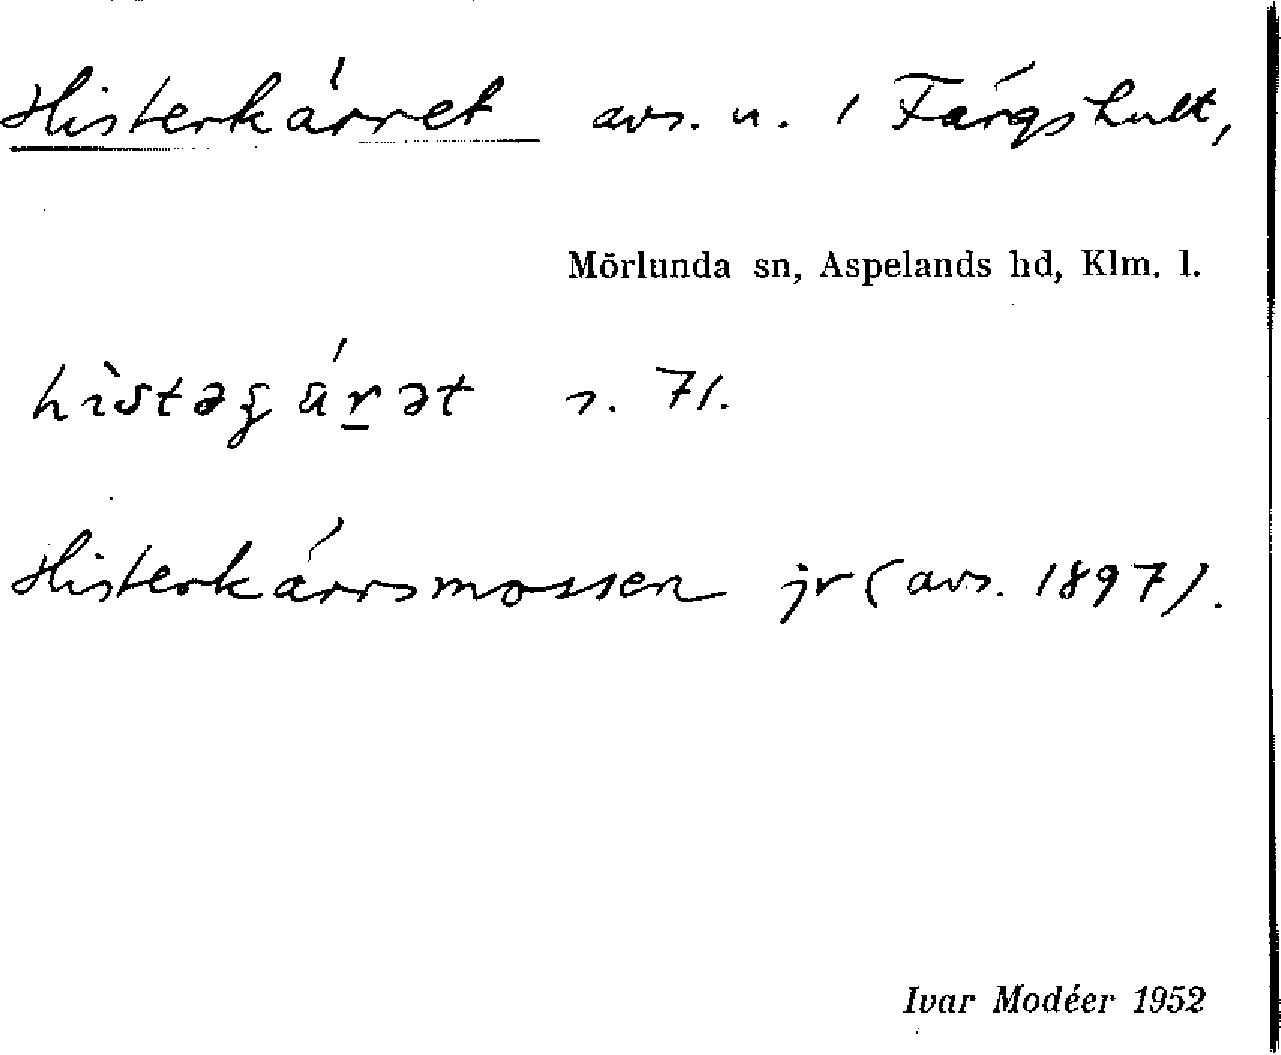 Histerkärret avs. u. 1 Färgshult,
Mörlunda sn, Aspelands hd, Klm. l.
s. 71.
Histerkärrsmossen jr (avs. 1897).
Ivar Modéer 1952